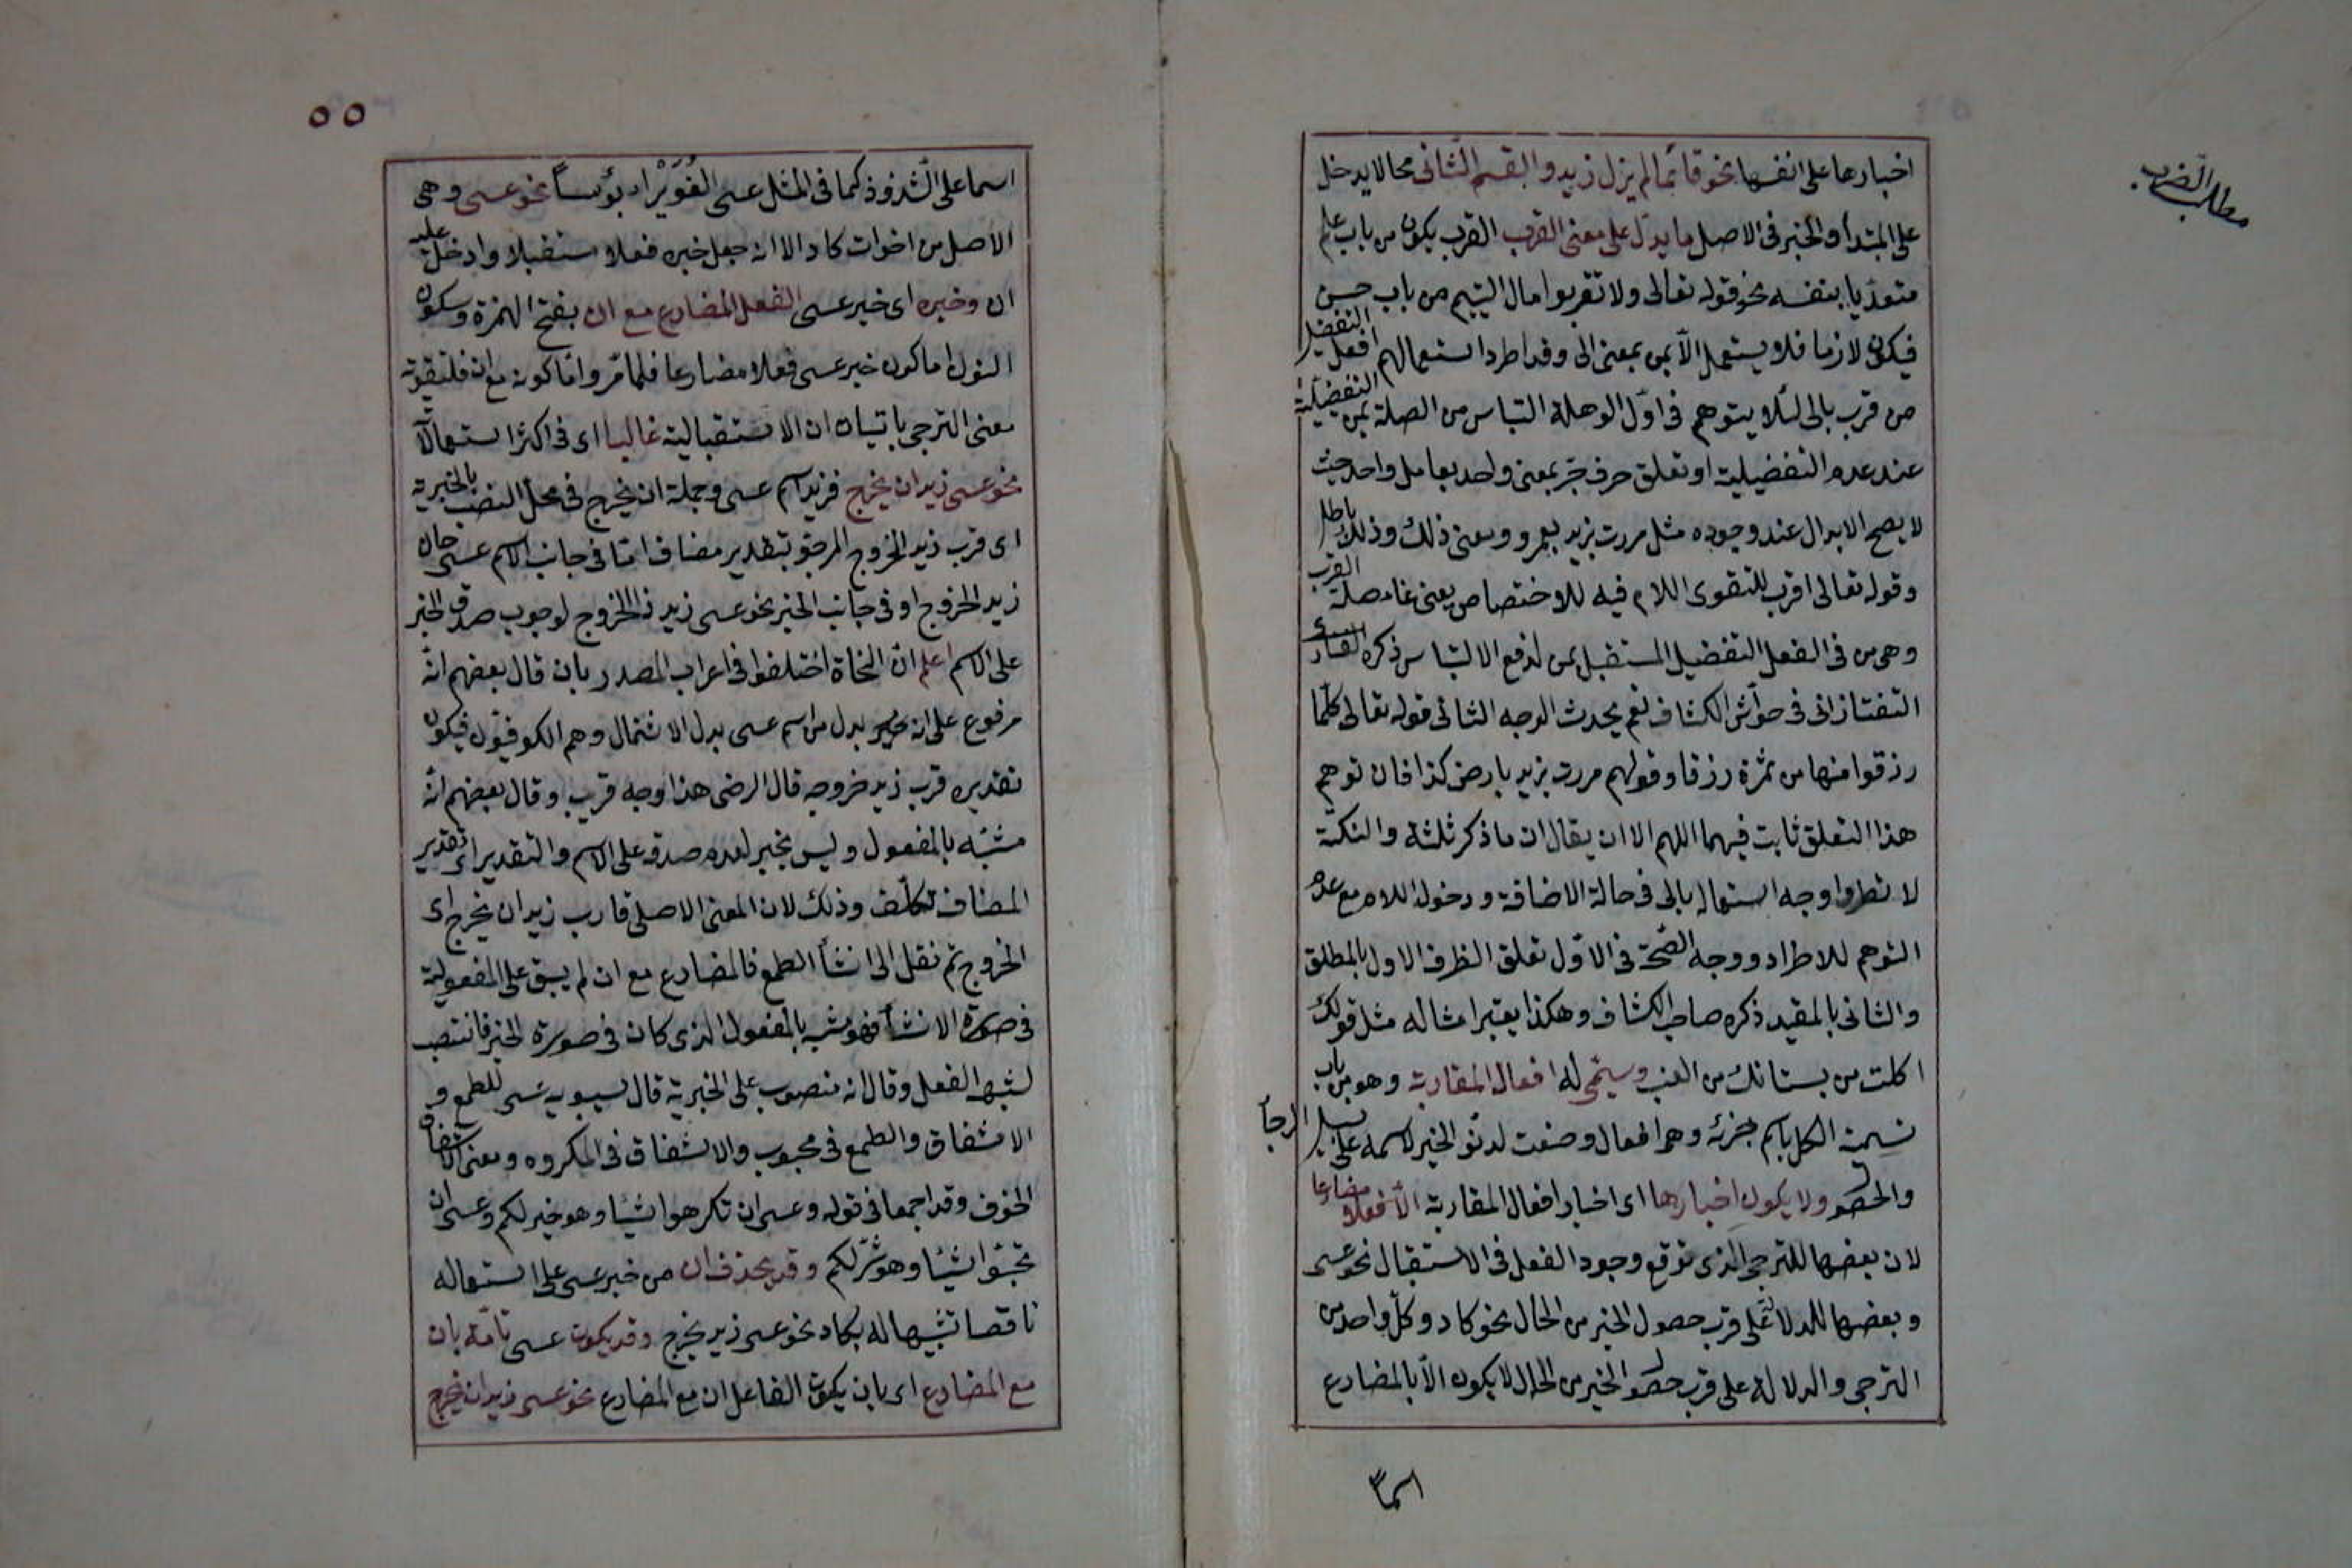 مطلب القرب
اخبارها على انفسها نحو قائما لم يزل زيد والقسم الثانى مما لا يدخل
على المبتدأ والخبر فى الاصل ما يدل على معنى القرب القرب يكون من باب علم
متعديا بنفسه نحو قوله تعالى ولا تقربوا مال اليتيم من باب حسن
فيكون لازما فلا يستعمل الا بمن بمعنى الى وقد اطرد استعمالهم افعل التفضيل
من قرب بالى لئلا يتوهم فى اول الوهلة التباس من الصلة بمن التفضيلية
عند عدم التفضيلية او تعلق حرف جر بمعنى واحد بعامل واحد حيث
لا يصح الابدال عند وجوده مثل مررت بزيد بعمرو ومعنى ذلك وذلك باطل
وقوله تعالى اقرب للتقوى اللام فيه للاختصاص يعنى غا صلة القرب
وهى من فى الفعل التفضيل المستقبل بمن لدفع الالتباس ذكره
التفتازانى فى حواش الكشاف نعم يحدث الوجه الثانى قوله تعالى كلما
رزقوا منها من ثمرة رزقا وقولهم مررت بزيد بارض كذا فان توهم
هذا التعلق ثابت فيهما اللهم الا ان يقال ان ما ذكر ثلثة والنكتة
لا تطروا وجه استعماله بالى فى حالة الاضافة ودخول اللام مع عدم
التوهم للاطراد ووجه الصحة فى الاول تعلق الظرف الاول بالمطلق
والثانى بالمقيد ذكره صاحب الكشاف وهكذا يعتبر امثاله مثل قولك
اكلت من بستانك من العنب وسيتمى له افعال المقاربة وهو من باب
تسمية الكل باسم جزئه وهو افعال وضعت لدنو الخبر لاسمه على سبيل الرجأ
والحصول ولا يكون اخبارها اى اخبار افعال المقاربة الا فعلا مضارعا
لان بعضها للترجى الذى توقع وجود الفعل فى الاستقبال نحو عسى
وبعضها للدلالة على قرب حصول الخبر من الحال نحو كاد وكل واحد من
الترجى والدلالة على قرب حصول الخبر من الحال لا يكون الا بالمضارع
اسما
٥٥
اسما على الشذوذ كما فى المثل عسى الغوير ابؤسا نحو عسى وهى
الاصل من اخوات كاد الا انه جعل خبره فعلا مستقبلا وادخل عليه
ان وخبره اى خبر عسى الفعل المضارع مع ان بفتح الهمزة وسكون
النون اما كون خبر عسى فعلا مضارعا فلما مر واما كونه مع ان فلتقوية
معنى الترجى باتيان ان الاستقبالية غالبا اى فى اكثر استعمالا
نحو عسى زيد ان يخرج فزيد اسم عسى وجملة ان يخرج فى محل النصب بالخبرية
اى قرب زيد الخروج المرجو بتقدير مضاف اما فى جانب الاسم عسى حال
زيد الخروج او فى جانب الخبر نحو عسى زيد ذا الخروج لوجوب صدق الخبر
على الاسم اعلم ان النحاة اختلفوا فى اعراب المصدر بان قال بعضهم انه
مرفوع على انه بدل من اسم عسى بدل الاشتمال وهم الكوفيون فيكون
تقديره قرب زيد خروجه قال الرضى هذا وجه قريب وقال بعضهم انه
مشبه بالمفعول وليس بخبر لعدم صدقه على الاسم والتقدير اى تقدير
المضاف تكلف وذلك لان المعنى الاصلى قارب زيد ان يخرج اى
الخروج ثم نقل الى انشأ الطمع فالمضارع مع ان لم يبق على المفعولية
فى صورة الانشأ فهو مشبه بالمفعول الذى كان فى صورة الخبر فانتصب
لشبه الفعل وقال انه منصوب على الخبرية قال سيبويه عسى للطمع و
الاشفاق والطمع فى محبوب والاشفاق فى المكروه ومعنى الاشفاق
الخوف وقد اجمعا فى قوله وعسى ان تكرهوا شيئا وهو خير لكم وعسى ان
تحبوا شيئا وهو شر لكم وقد يحذف ان من خبر عسى على استعماله
ناقصا تشبيها له بكاد نحو عسى زيد يخرج وقد يكون عسى تامة بان
مع المضارع اى بان يكون الفاعل ان مع المضارع نحو عسى زيد ان يخرج